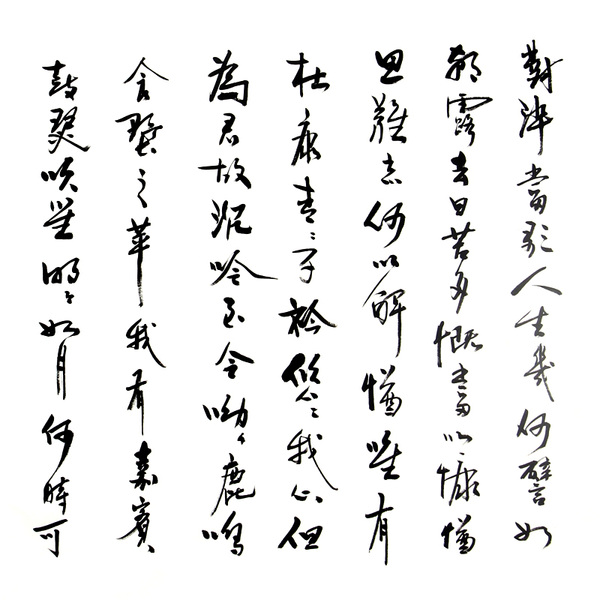 對酒當歌人生幾何譬如
朝露去日苦多慨當以慷憂
思難忘何以解憂唯有
杜康青々子衿悠々我心但
為君故沉吟至今呦々鹿鳴
食野之苹我有嘉賓
鼓瑟吹笙明々如月何時可